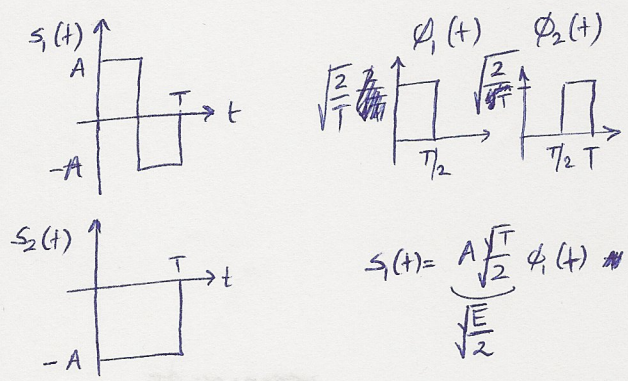 s₁(t)
A
T
t
-A
φ₁(t)
√(2/T)
T/2
φ₂(t)
√(2/T)
T/2 T
s₂(t)
T
t
-A
s₁(t) = A√(T/2) φ₁(t)
√(E/2)